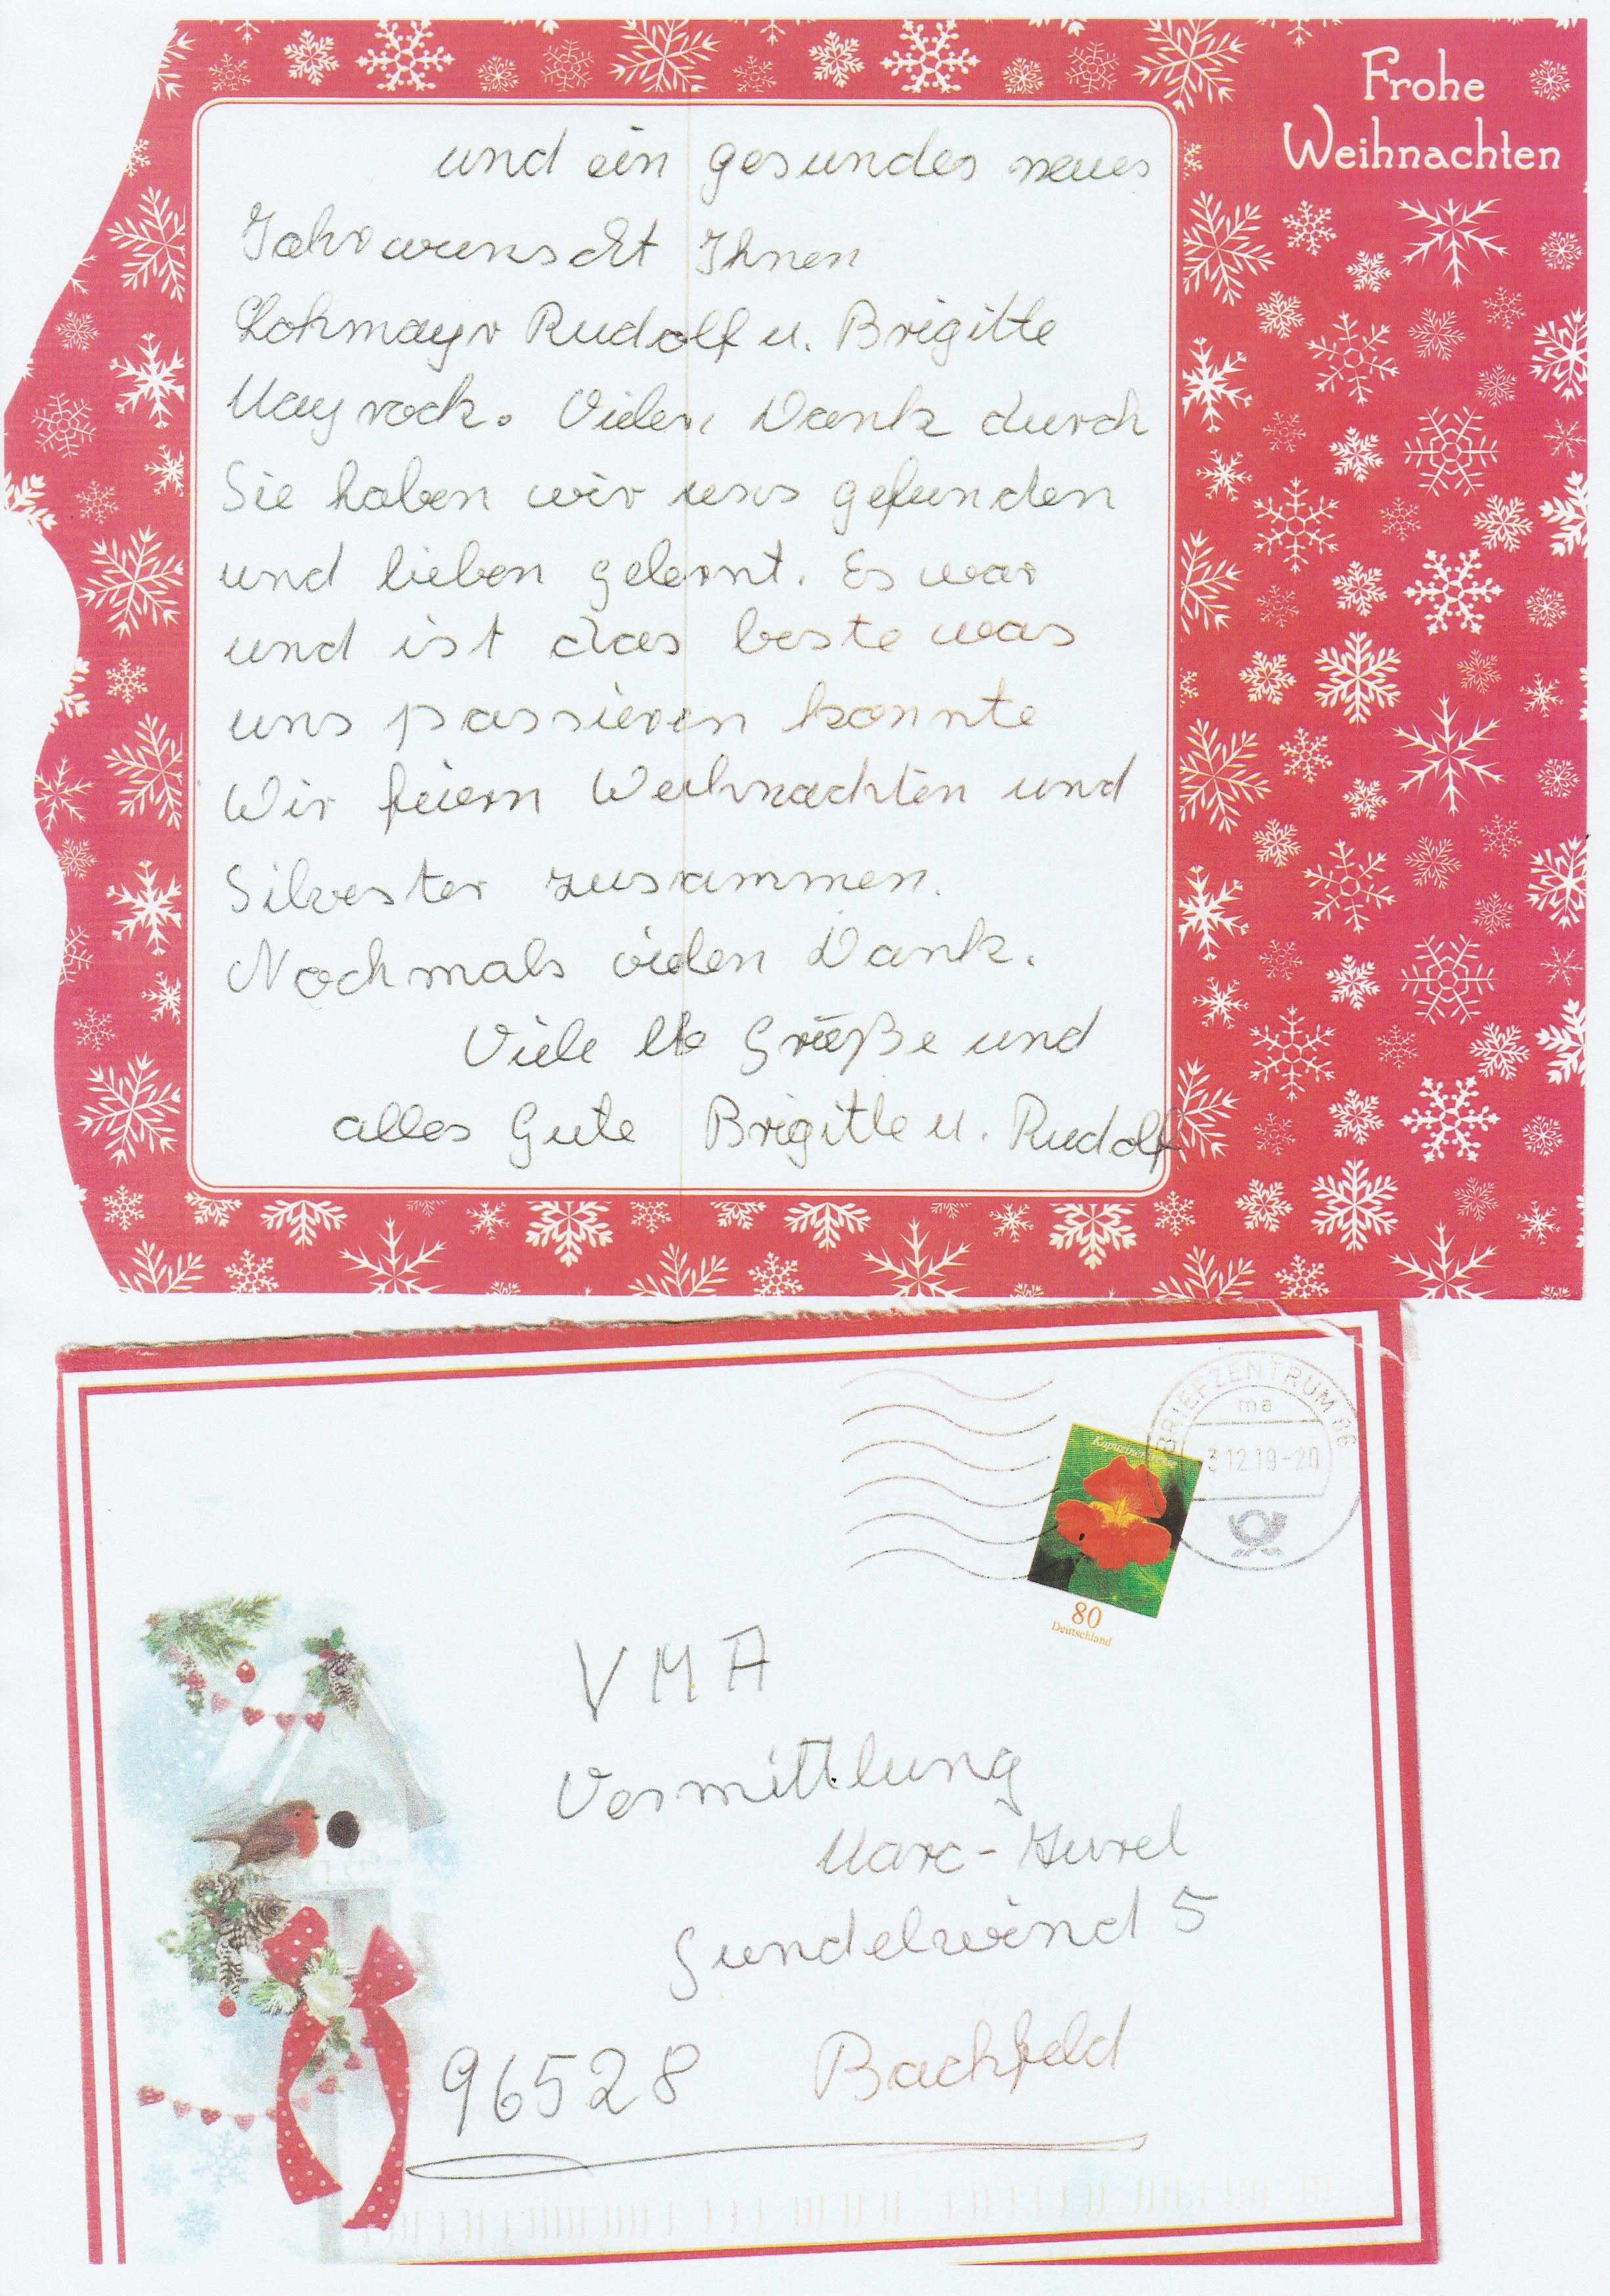 Frohe
Weihnachten
und ein gesundes neues
Jahr wunscht Ihnen
Lohmayr Rudolf u. Brigitte
Mayrock. Vielen Dank durch
Sie haben wir uns gefunden
und lieben gelernt. Es war
und ist das beste was
uns passieren konnte
Wir feiern Weihnachten und
Silvester zusammen.
Nochmals vielen Dank.
Viele lb Grüße und
alles Gute Brigitte u. Rudolf
BRIEFZENTRUM 86
ma
3.12.19-20
Kapuzinerkresse
80
Deutschland
VMA
Vermittlung
Marc-Aurel
Gundelwind 5
96528 Bachfeld